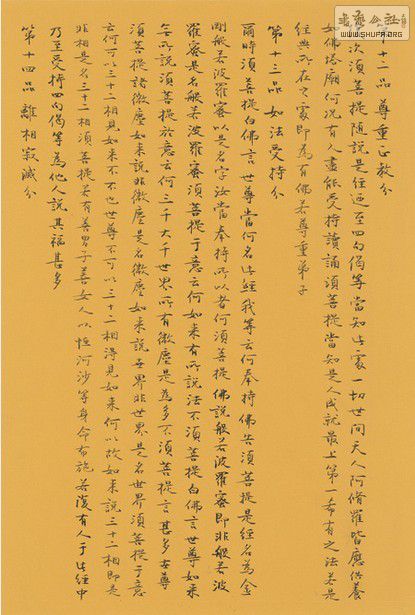 WWW.SHUFA.ORG
第十二品 尊重正教分
復次須菩提隨說是經乃至四句偈等當知此處一切世間天人阿脩羅皆應供養
如佛塔廟何況有人盡能受持讀誦須菩提當知是人成就最上第一希有之法若是
經典所在之處即為有佛若尊重弟子
第十三品 如法受持分
爾時須菩提白佛言世尊當何名此經我等云何奉持佛告須菩提是經名為金
剛般若波羅蜜以是名字汝當奉持所以者何須菩提佛說般若波羅蜜即非般若波
羅蜜是名般若波羅蜜須菩提于意云何如來有所說法不須菩提白佛言世尊如來
無所說須菩提於意云何三千大千世界所有微塵是為多不須菩提言甚多世尊
須菩提諸微塵如來說非微塵是名微塵如來說世界非世界是名世界須菩提于意
云何可以三十二相見如來不不也世尊不可以三十二相得見如來何以故如來說三十二相即是
非相是名三十二相須菩提若有善男子善女人以恒河沙等身命布施若復有人于此經中
乃至受持四句偈等為他人說其福甚多
第十四品 離相寂滅分